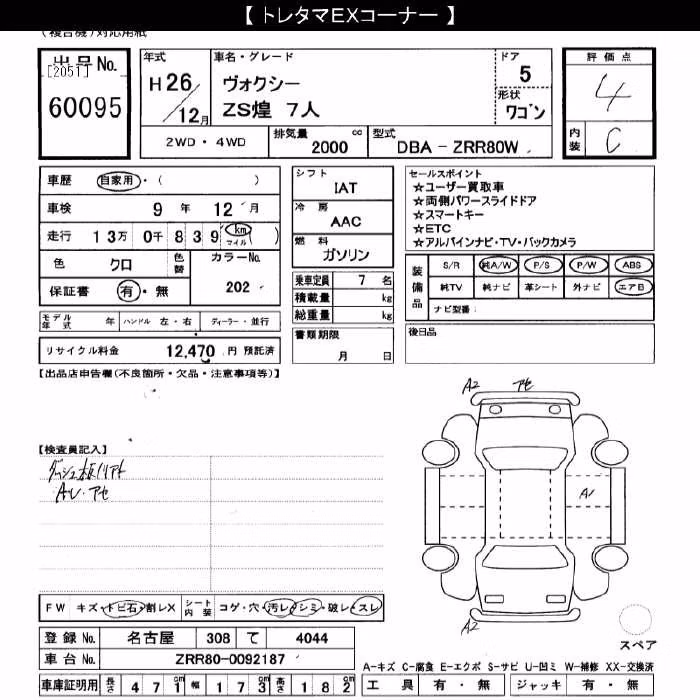 【 トレタマEXコーナー 】
(複合機)対応用紙
出品No.
[2051]
60095
年式
H26/12月
車名・グレード
ヴォクシー
ZS煌 7人
ドア
5
形状
ワゴン
評価点
4
内装
C
2WD・4WD
排気量
2000 cc
型式
DBA - ZRR80W
車歴 自家用・( )
車検 9年 12月
走行 13万 0千 839 (km マイル)
色 クロ
色替
カラーNo.
202
保証書 有・無
シフト
IAT
冷房
AAC
燃料
ガソリン
乗車定員 7 名
積載量 kg
総重量 kg
書類期限
月 日
セールスポイント
☆ユーザー買取車
☆両側パワースライドドア
☆スマートキー
☆ETC
☆アルパインナビ・TV・バックカメラ
装備品
S/R 純A/W P/S P/W ABS
純TV 純ナビ 革シート 外ナビ エアB
ナビ型番:
モデル年式 年 ハンドル 左・右 ディーラー・並行
リサイクル料金 12,470 円 預託済
後日品
【出品店申告欄(不良箇所・欠品・注意事項等)】
A2 アセ
【検査員記入】
A1
A2
FW キズ・トビ石・割レX
シート内装 コゲ・穴・汚レ・シミ・破レ・スレ
登録No. 名古屋 308 て 4044
車台No. ZRR80-0092187
スペア
A-キズ C-腐食 E-エクボ S-サビ U-凹ミ W-補修 XX-交換済
車庫証明用 長さ 471cm 幅 173cm 高さ 182cm
工具 有・無 ジャッキ 有・無